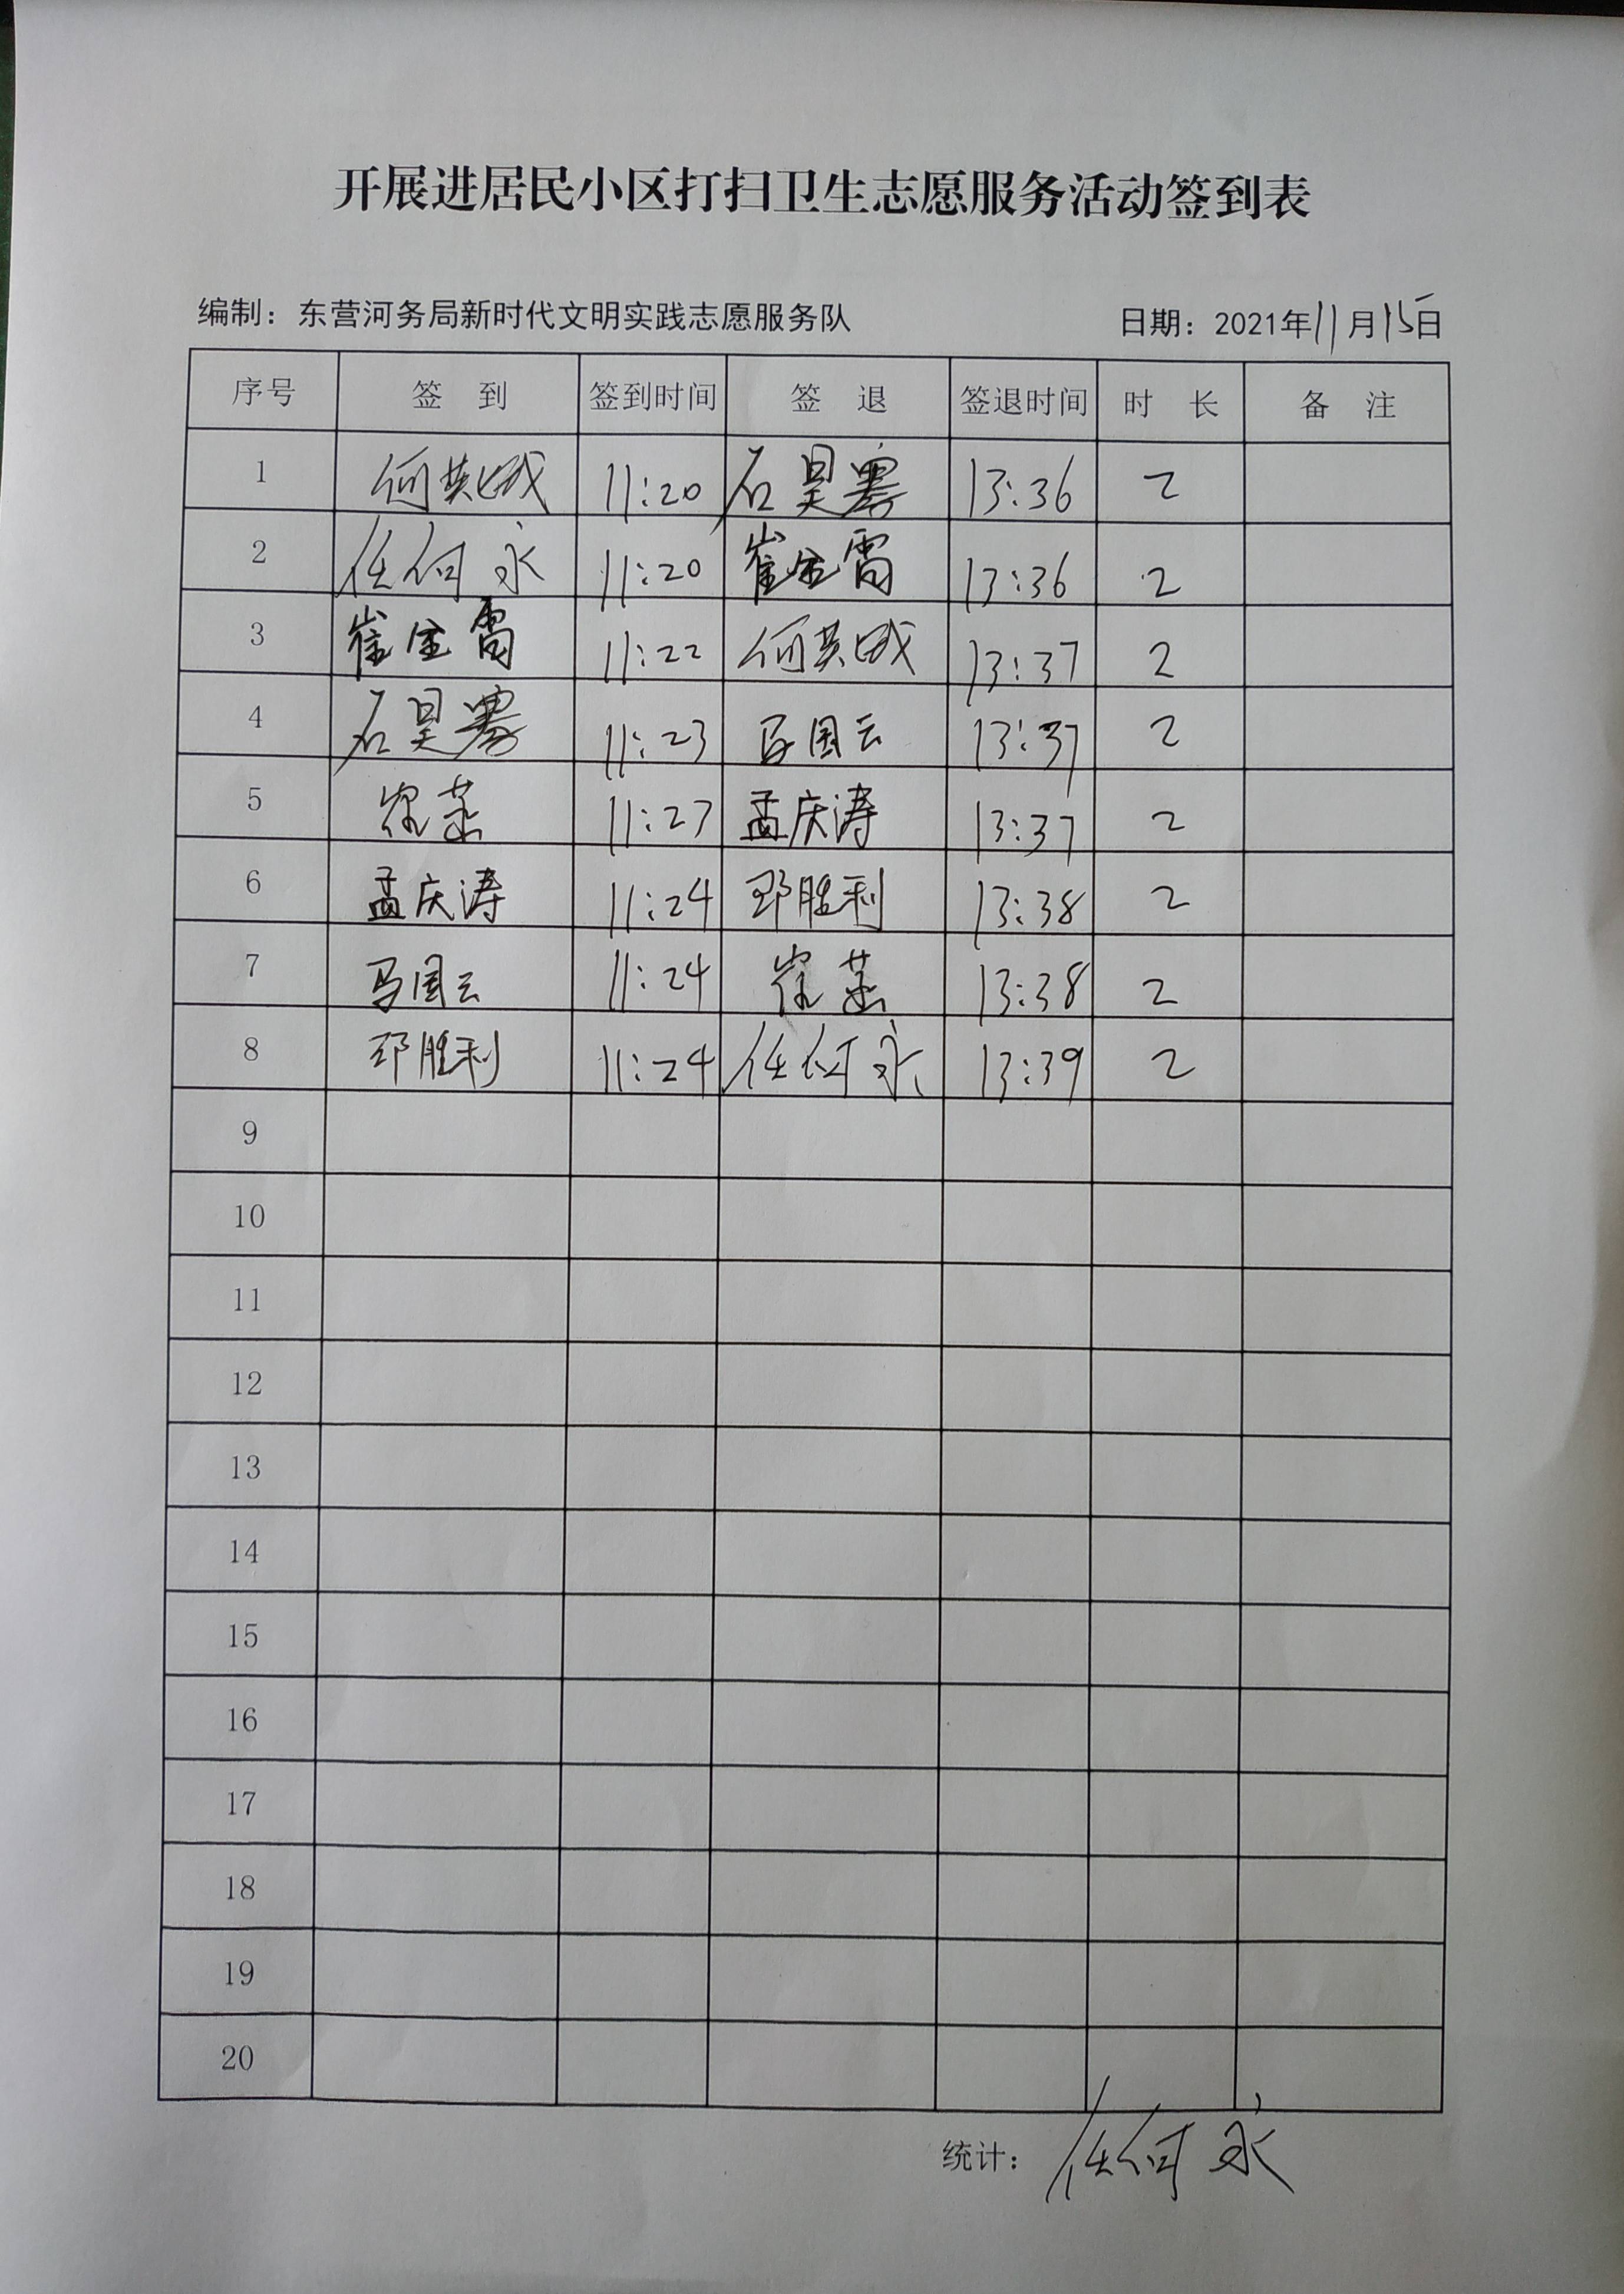 开展进居民小区打扫卫生志愿服务活动签到表
编制：东营河务局新时代文明实践志愿服务队 日期：2021年11月15日
序号 签 到 签到时间 签 退 签退时间 时 长 备 注
1 11:20 13:36 2
2 任何永 11:20 13:36 2
3 11:22 13:37 2
4 11:23 马国云 13:37 2
5 11:27 孟庆涛 13:37 2
6 孟庆涛 11:24 胜利 13:38 2
7 马国云 11:24 13:38 2
8 胜利 11:24 任何永 13:39 2
9
10
11
12
13
14
15
16
17
18
19
20
统计：任何永